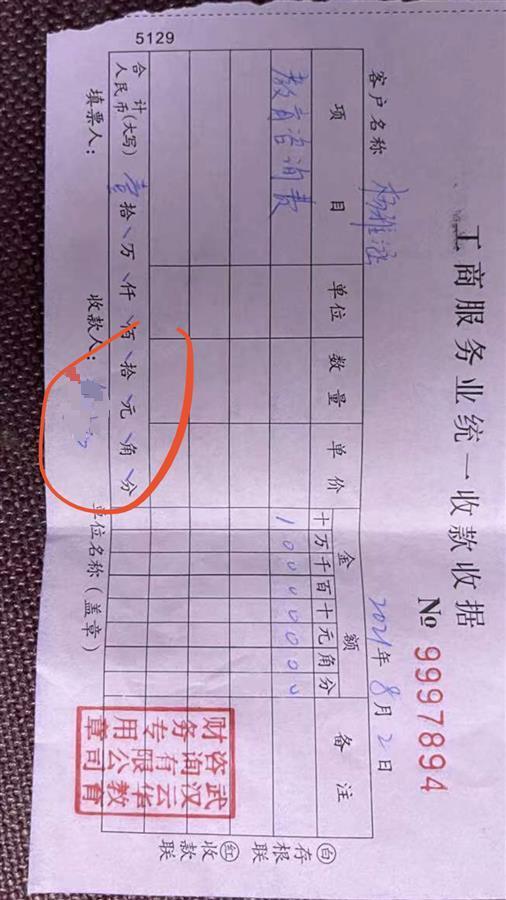 工商服务业统一收款收据
№ 9997894
客户名称 杨雅涵
2021年8月2日
项目 单位 数量 单价 金额 备注
十万千百十元角分
教育咨询费 10000000
合计
人民币(大写) 壹拾万仟佰拾元角分
填票人： 收款人： 单位名称(盖章)
武汉云华教育
咨询有限公司
财务专用章
白 存根联
红 收款联
5129